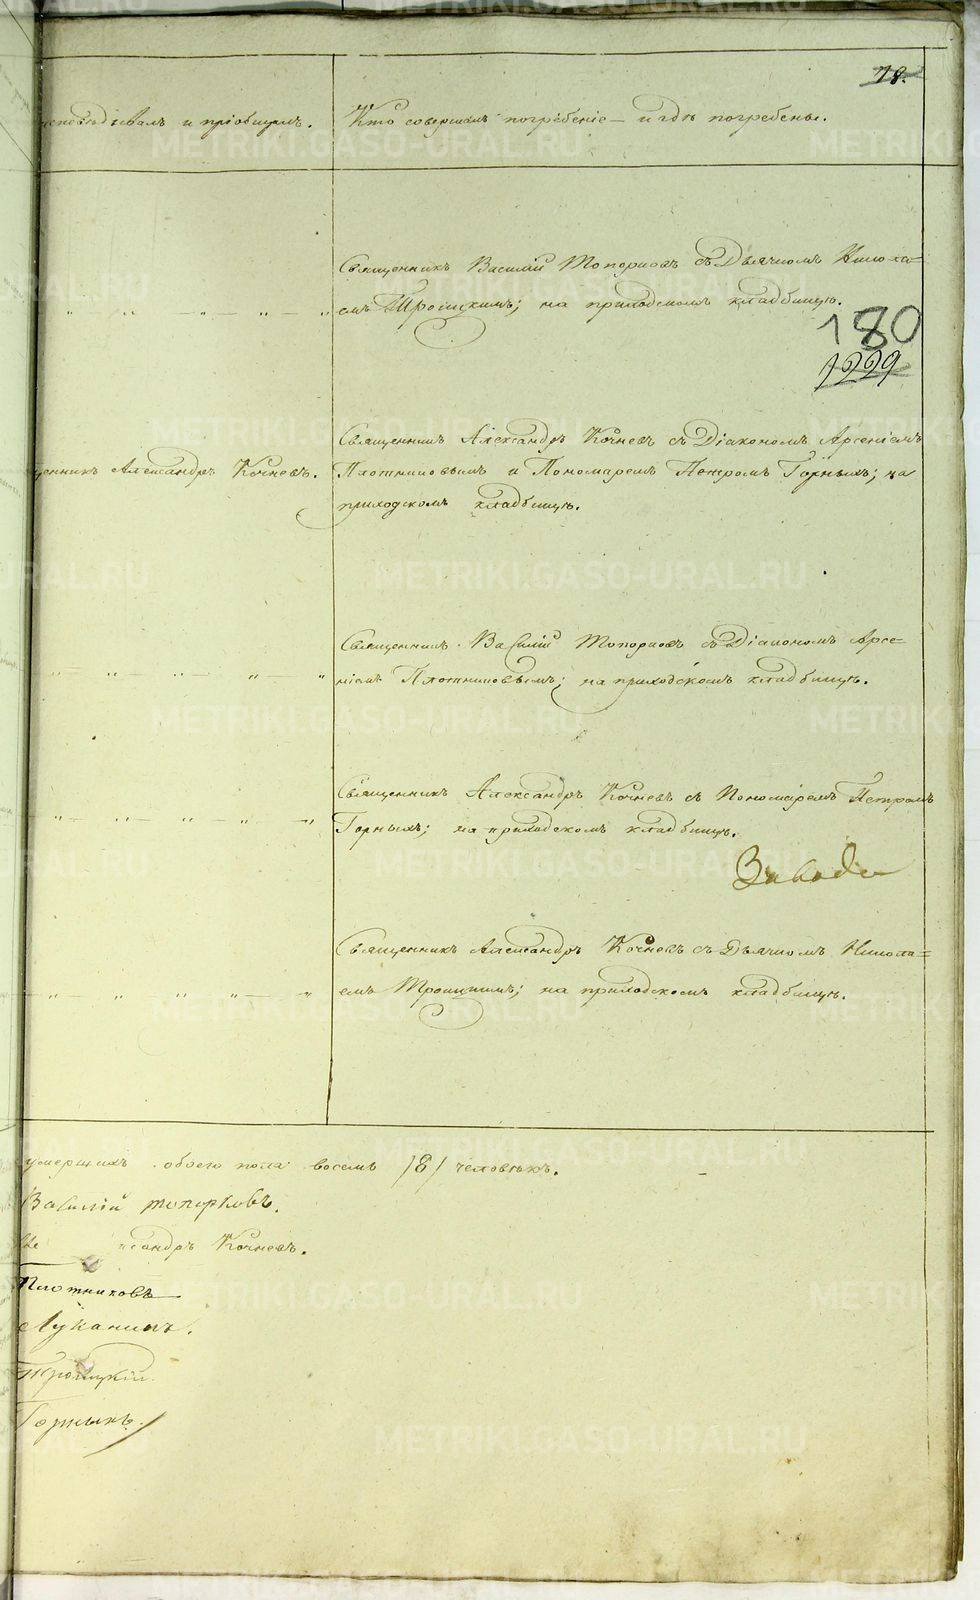 78.
исповѣдывалъ и пріобщалъ. Кто совершалъ погребеніе — и гдѣ погребены.
Священникъ Василій Топорковъ съ Дьячкомъ Никола-
емъ Троицкимъ; на приходскомъ кладбищѣ.
180
1999
Священникъ Александръ Кочневъ съ Діакономъ Арсеніемъ
щенникъ Александръ Кочневъ. Плотниковымъ и Пономаремъ Петромъ Горныхъ; на
приходскомъ кладбищѣ.
Священникъ Василій Топорковъ съ Діакономъ Арсе-
ніемъ Плотниковымъ; на приходскомъ кладбищѣ.
Священникъ Александръ Кочневъ съ Пономаремъ Петромъ
Горныхъ; на приходскомъ кладбищѣ.
Священникъ Александръ Кочневъ съ Дьячкомъ Никола=
емъ Троицкимъ; на приходскомъ кладбищѣ.
умершихъ обоего пола восемь /8/ человѣкъ.
Василій Топорковъ.
ксандръ Кочневъ.
Плотниковъ
Луканинъ.
Троицкій.
Горныхъ.
METRIKI.GASO-URAL.RU